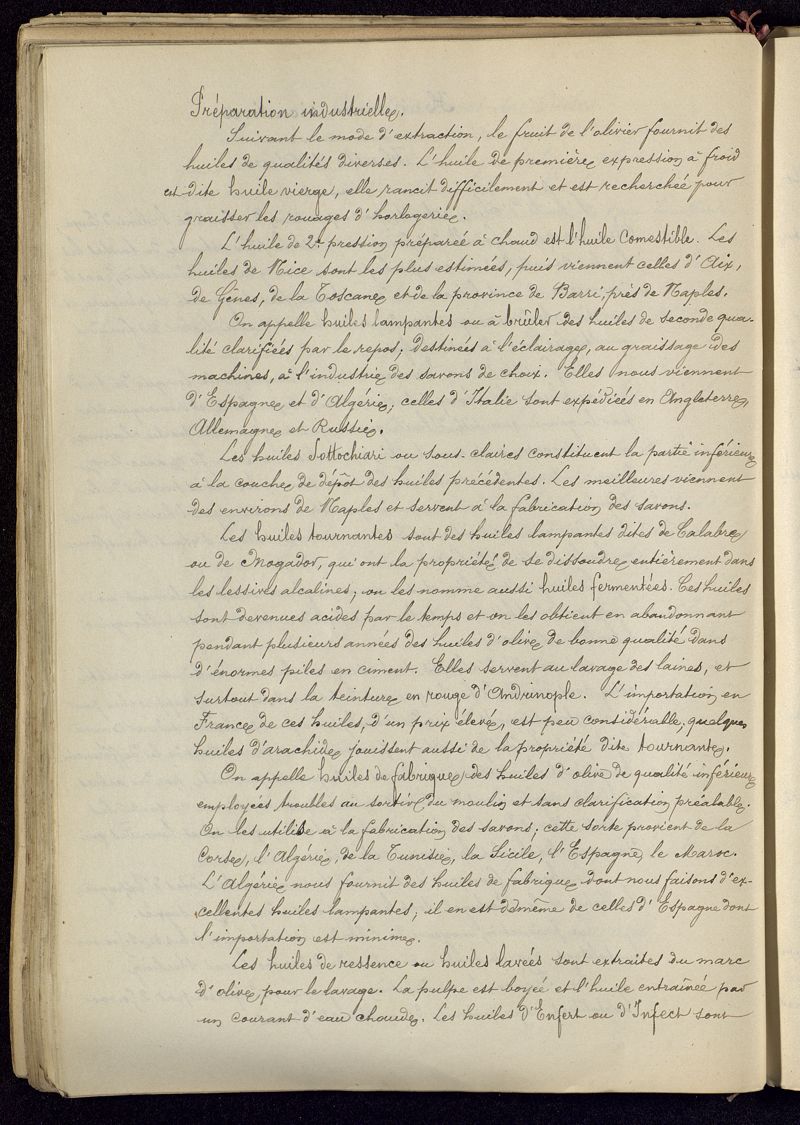 Préparation industrielle.
Suivant le mode d'extraction, le fruit de l'olivier fournit des
huiles de qualités diverses. L'huile de première expression à froid
est dite huile vierge, elle rancit difficilement et est recherchée pour
graisser les rouages d'horlogerie.
L'huile de 2e pression préparée à chaud est l'huile Comestible. Les
huiles de Nice sont les plus estimées, puis viennent celles d'Aix,
de Gênes, de la Toscane et de la province de Barri, près de Naples.
On appelle huiles lampantes ou à brûler des huiles de seconde qua-
lité clarifiées par le repos, destinées à l'éclairage, au graissage des
machines, à l'industrie des savons de choix. Elles nous viennent
d'Espagne et d'Algérie; celles d'Italie sont expédiées en Angleterre,
Allemagne et Russie.
Les huiles Sottochiari ou sous-claires constituent la partie inférieure
à la couche de dépôt des huiles précédentes. Les meilleures viennent
des environs de Naples et servent à la fabrication des savons.
Les huiles tournantes sont des huiles lampantes dites de Calabre
ou de Mogador, qui ont la propriété de se dissoudre entièrement dans
les lessives alcalines; on les nomme aussi huiles fermentées. Ces huiles
sont devenues acides par le temps et on les obtient en abandonnant
pendant plusieurs années des huiles d'olive de bonne qualité dans
d'énormes piles en ciment. Elles servent au lavage des laines, et
surtout dans la teinture en rouge d'Andrinople. L'importation en
France de ces huiles, d'un prix élevé, est peu considérable; quelques
huiles d'arachide jouissent aussi de la propriété dite tournante.
On appelle huiles de fabrique, des huiles d'olive de qualité inférieure
employées troubles au sortir du moulin et sans clarification préalable.
On les utilise à la fabrication des savons; cette sorte provient de la
Corse, l'Algérie, de la Tunisie, la Sicile, l'Espagne, le Maroc.
L'Algérie nous fournit des huiles de fabrique dont nous faisons d'ex-
cellentes huiles lampantes; il en est de même de celles d'Espagne dont
l'importation est minime.
Les huiles de ressence ou huiles lavées sont extraites du marc
d'olive pour le lavage. La pulpe est boyée et l'huile entraînée par
un courant d'eau chaude. Les huiles d'Enfert ou d'Infect sont